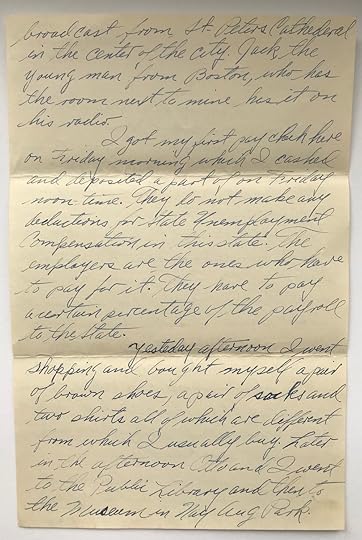 broadcast from St. Peters Cathederal
in the center of the city. Jack the
young man from Boston, who has
the room next to mine has it on
his radio.
I got my first pay check here
on Friday morning which I cashed
and deposited a part of on Friday
noon time. They do not make any
deductions for State Unemployment
Compensation in this state. The
employers are the ones who have
to pay for it. They have to pay
a certain percentage of the payroll
to the state.
Yesteday afternoon I went
shopping and bought myself a pair
of brown shoes, a pair of socks and
two shirts all of which are different
from which I usually buy. Later
in the afternoon Otto and I went
to the Public Library and then to
the Museum in Nay Aug Park.